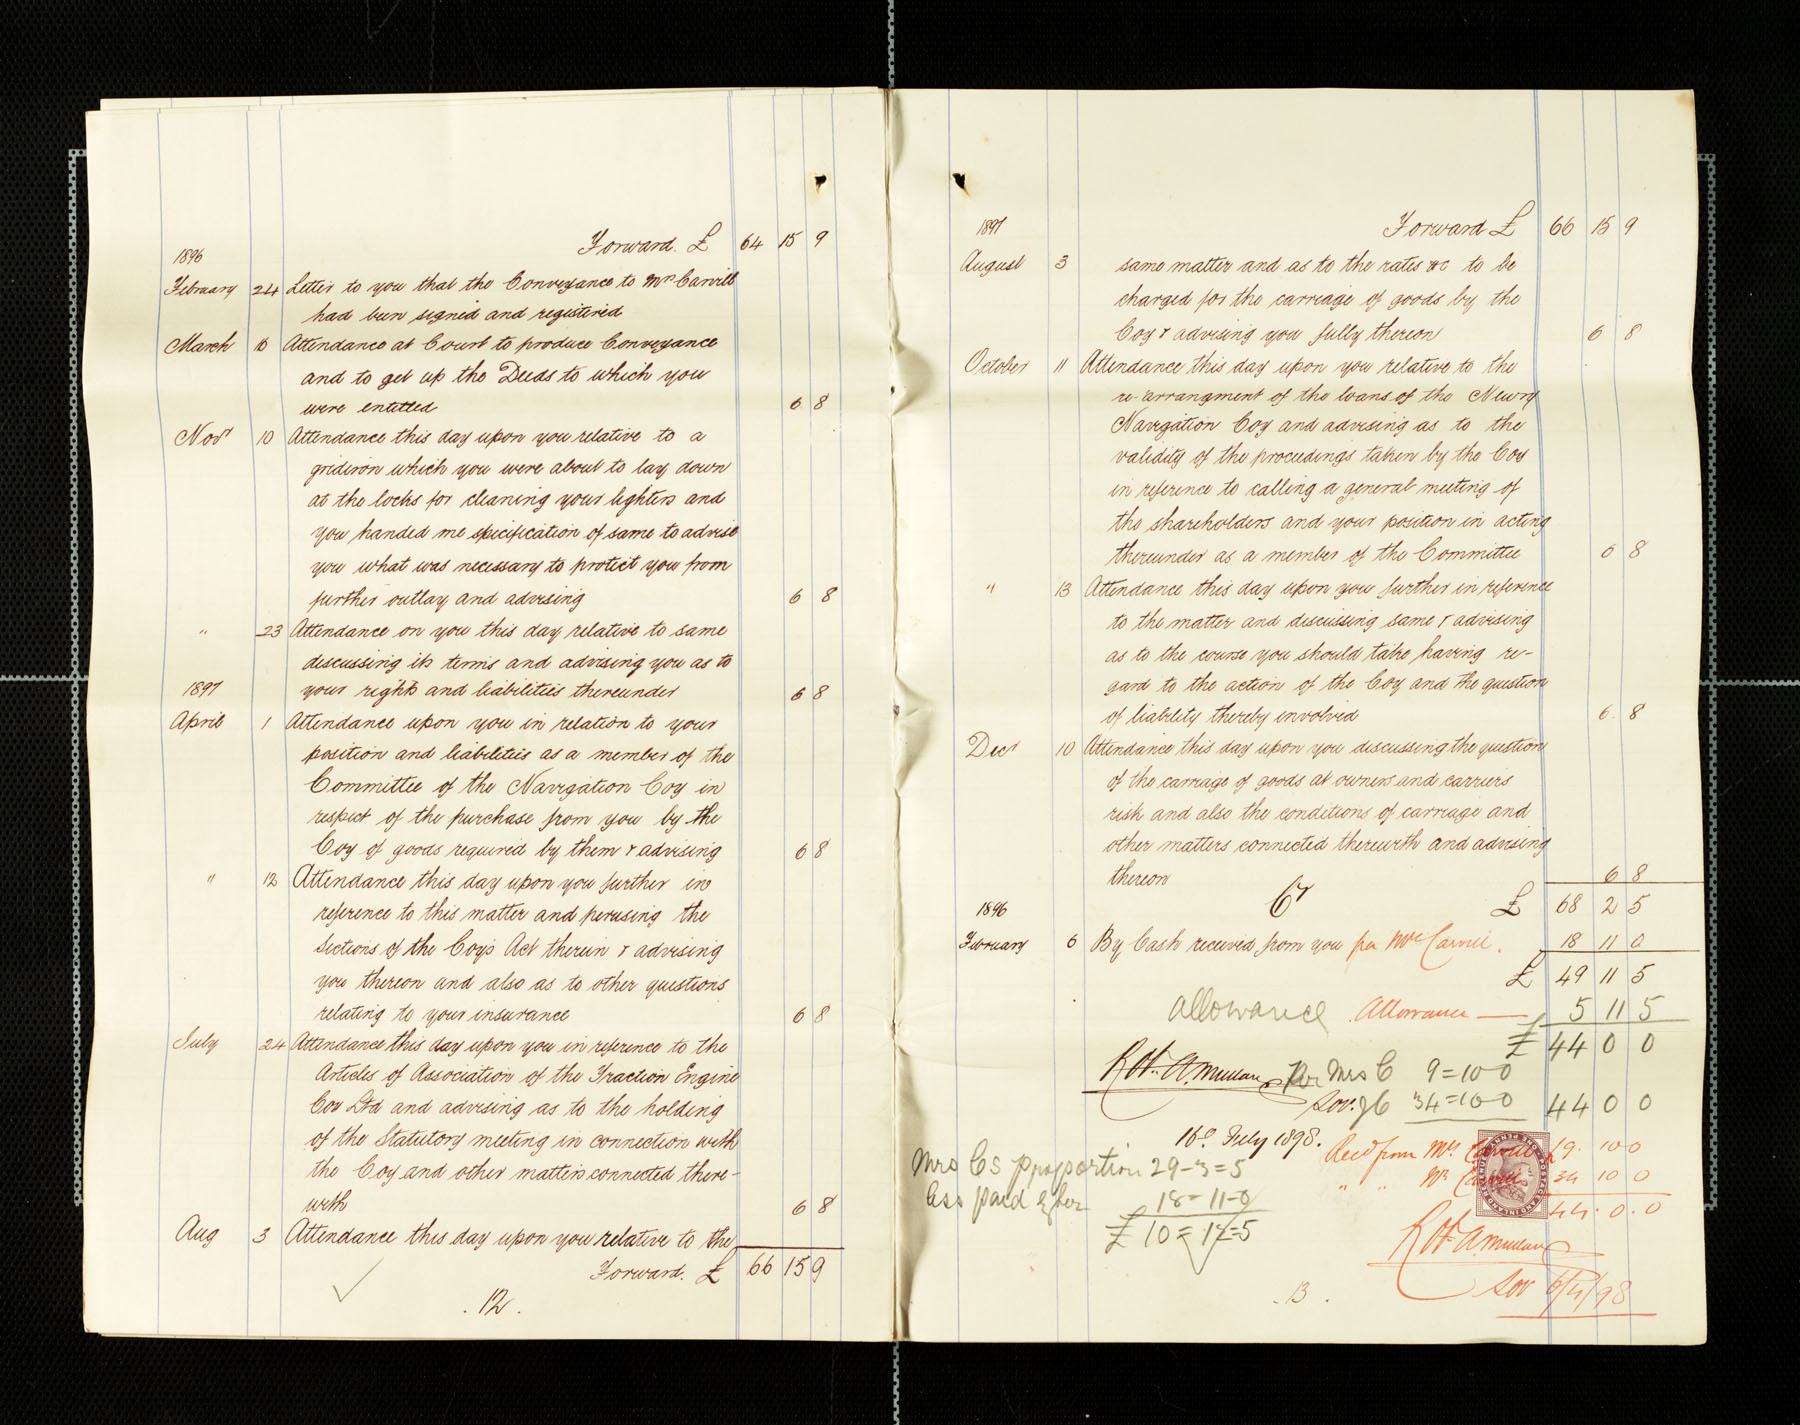 Forward. £ 64 15 9
1896
February 24 Letter to you that the Conveyance to Mrs Carvill
had been signed and registered
March 16 Attendance at Court to produce Conveyance
and to get up the Deeds to which you
were entitled 6 8
Novr 10 Attendance this day upon you relative to a
gridiron which you were about to lay down
at the locks for cleaning your lighters and
you handed me specification of same to advise
you what was necessary to protect you from
further outlay and advising 6 8
" 23 Attendance on you this day relative to same
discussing its terms and advising you as to
1897 your rights and liabilities thereunder 6 8
April 1 Attendance upon you in relation to your
position and liabilities as a member of the
Committee of the Navigation Coy in
respect of the purchase from you by the
Coy of goods required by them & advising 6 8
" 12 Attendance this day upon you further in
reference to this matter and perusing the
Sections of the Coys Act therein & advising
you thereon and also as to other questions
relating to your insurance 6 8
July 24 Attendance this day upon you in reference to the
Articles of Association of the Traction Engine
Coy Ltd and advising as to the holding
of the Statutory meeting in connection with
the Coy and other matters connected there-
with 6 8
Aug 3 Attendance this day upon you relative to the
Forward. £ 66 15 9
. 12 .
1897 Forward £ 66 15 9
August 3 same matter and as to the rates &c to be
charged for the carriage of goods by the
Coy & advising you fully thereon 6 8
October 11 Attendance this day upon you relative to the
re-arrangment of the loans of the Newry
Navigation Coy and advising as to the
validity of the proceedings taken by the Coy
in reference to calling a general meeting of
the shareholders and your position in acting
thereunder as a member of the Committee 6 8
" 13 Attendance this day upon you further in reference
to the matter and discussing same & advising
as to the course you should take having re-
gard to the action of the Coy and the question
of liability thereby involved 6 8
Decr 10 Attendance this day upon you discussing the question
of the carriage of goods at owners and carriers
risk and also the conditions of carriage and
other matters connected therewith and advising
thereon 6 8
1896 Cr £ 68 2 5
February 6 By Cash received from you per Mrs Carvill. 18 11 0
£ 49 11 5
allowance Allowance — 5 11 5
£ 44 0 0
Per Mrs C 9=10-0
34=10-0 44 0 0
16 July 1898.
Recd from Mrs Carvill £9. 10 0
" " Mr Carvill 34 10 0
44. 0. 0
Mrs Cs proportion 29-3=5
less paid
18=11-0
£10=12=5
. 13 .